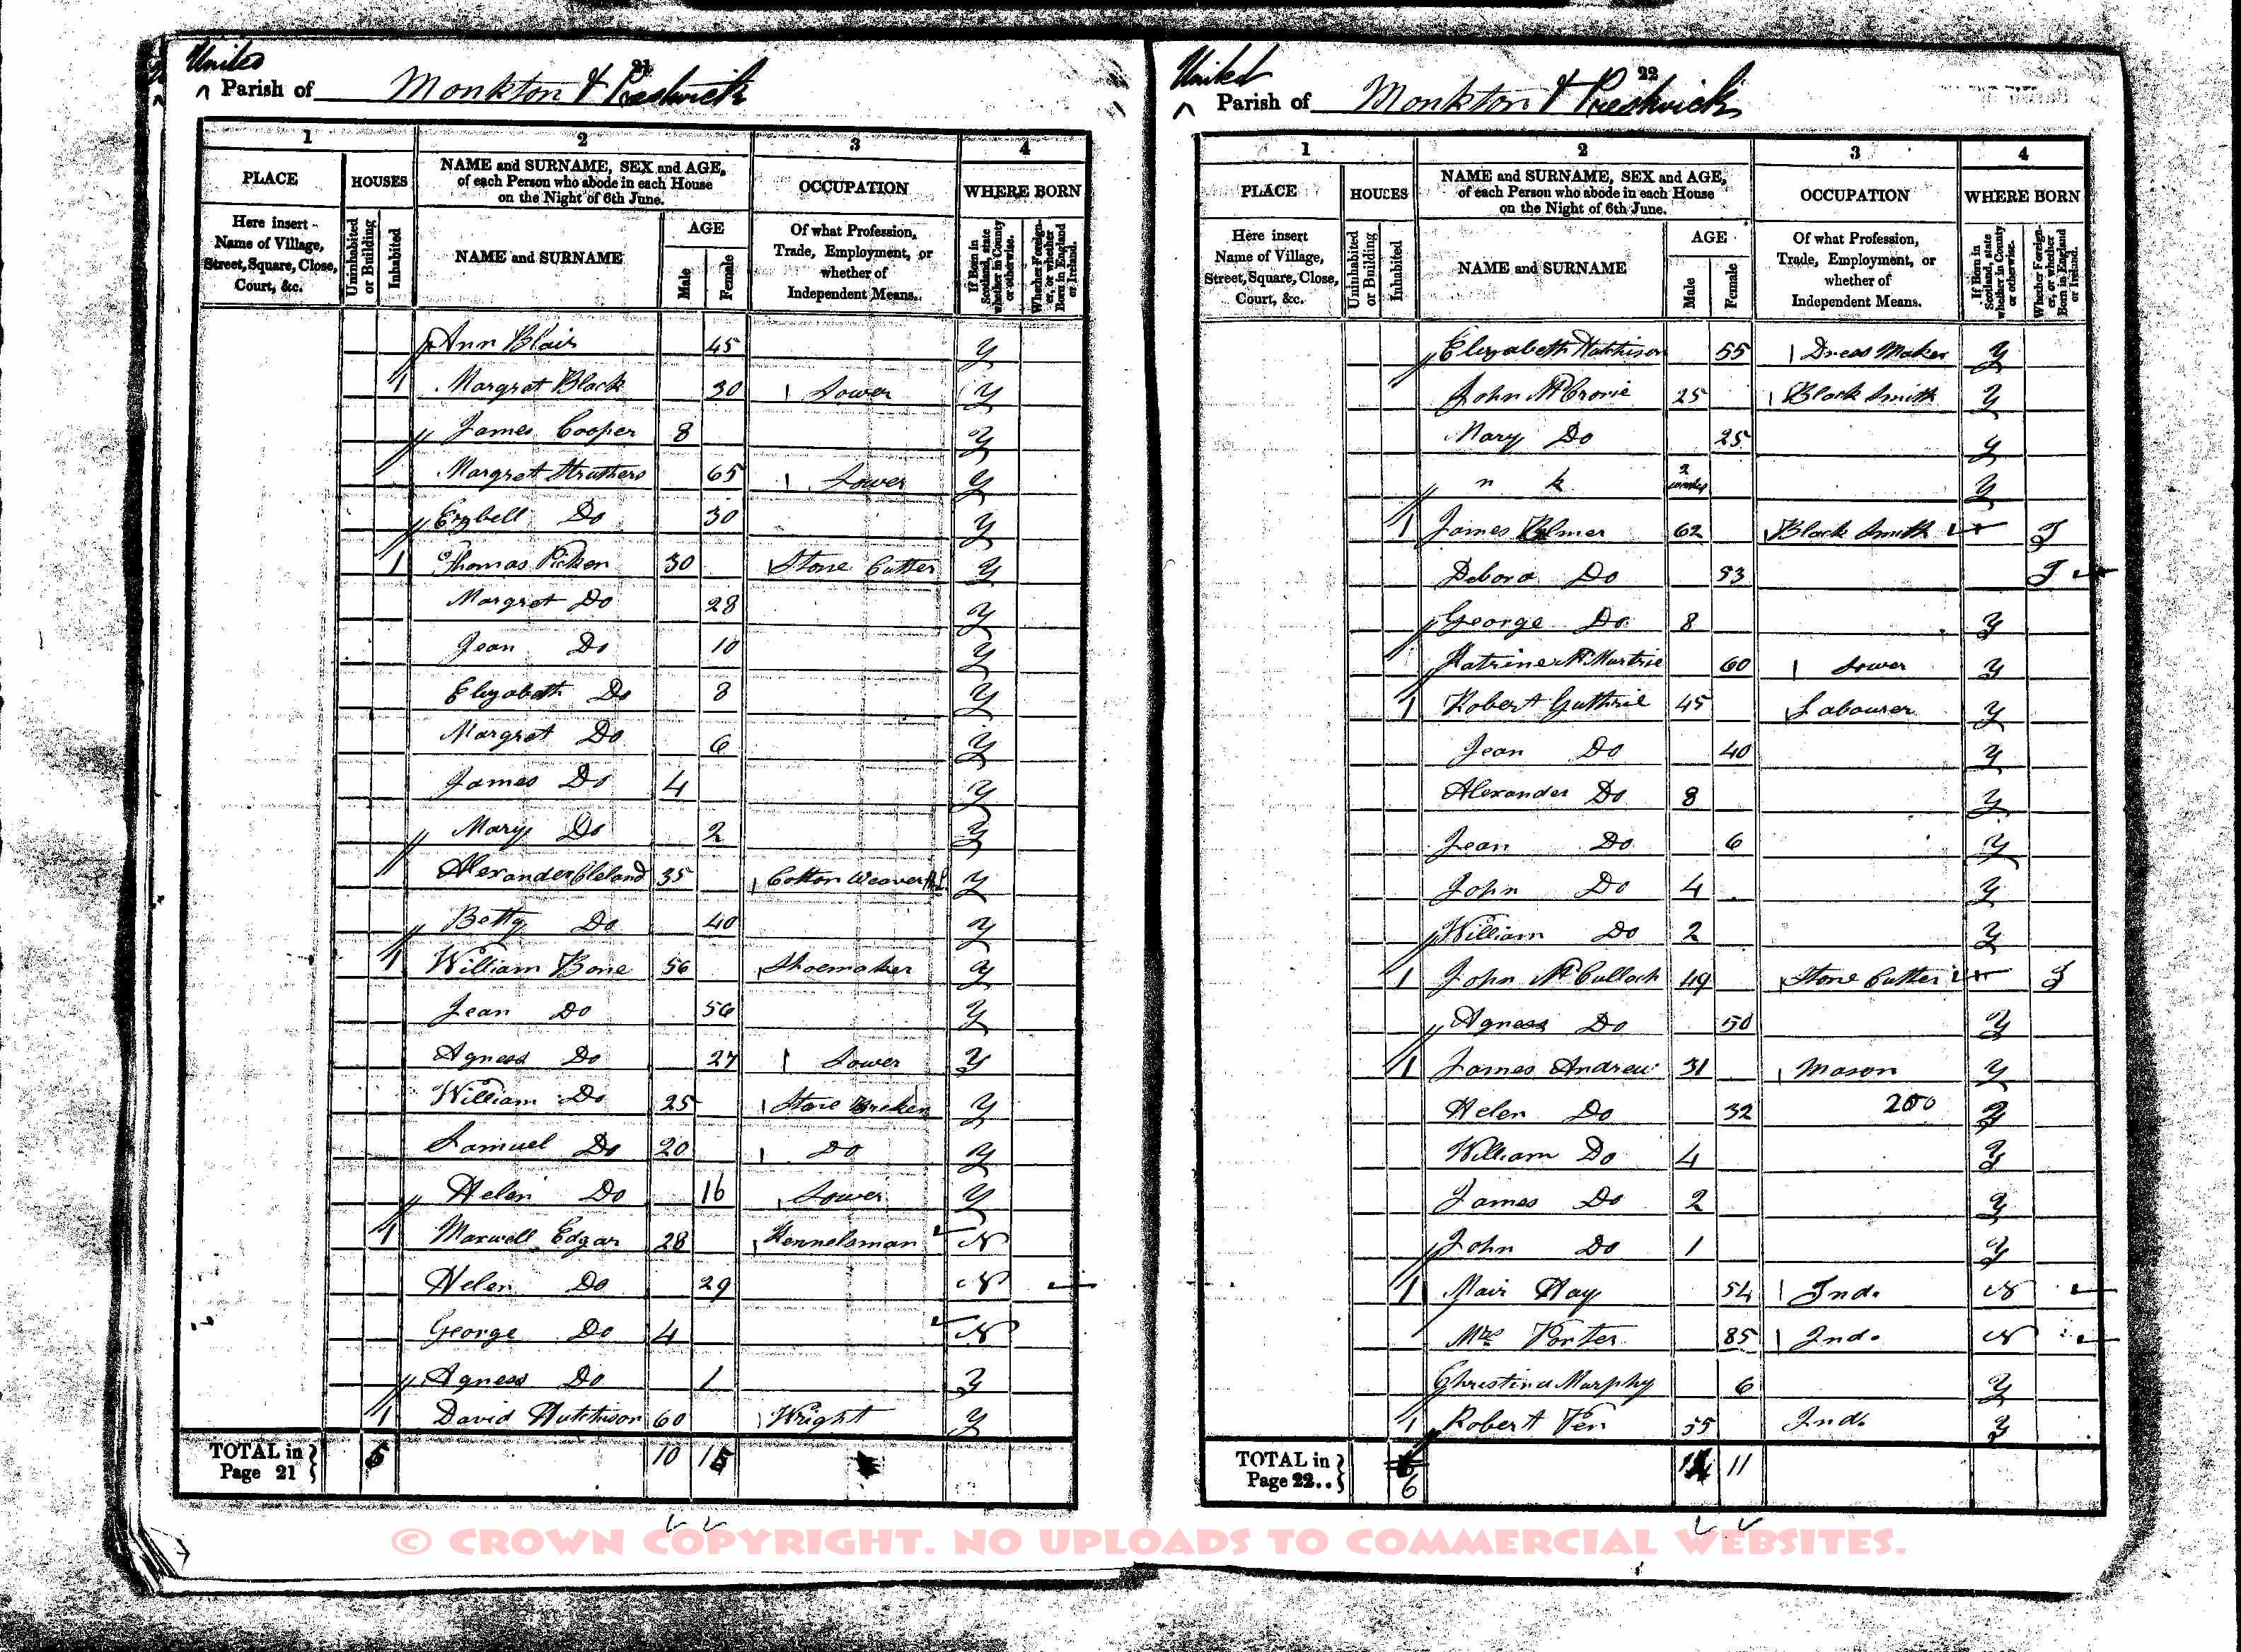 United
21
Parish of Monkton & Prestwick
1 2 3 4
PLACE HOUSES NAME and SURNAME, SEX and AGE, of each Person who abode in each House on the Night of 6th June. OCCUPATION WHERE BORN
Here insert Name of Village, Street, Square, Close, Court, &c. Uninhabited or Building Inhabited NAME and SURNAME AGE Male Female Of what Profession, Trade, Employment, or whether of Independent Means. If Born in Scotland, state whether in County or otherwise. Whether Foreigner, or whether Born in England or Ireland.
Ann Blair 45 Y
1 Margret Black 30 Sower Y
James Cooper 8 Y
Margret Struthers 65 Sower Y
Ezybell Do 30 Y
1 Thomas Picken 30 Stone Cutter Y
Margret Do 28 Y
Jean Do 10 Y
Elizabeth Do 8 Y
Margret Do 6 Y
James Do 4 Y
Mary Do 2 Y
Alexander Cleland 35 Cotton Weaver Y
Betty Do 40 Y
1 William Bone 56 Shoemaker Y
Jean Do 56 Y
Agness Do 27 Sower Y
William Do 25 Stone Breker Y
Samuel Do 20 Do Y
Helen Do 16 Sower Y
1 Maxwell Edgar 28 Kennelsman N
Helen Do 29 N
George Do 4 N
Agness Do 1 Y
1 David Hutchison 60 Wright Y
TOTAL in Page 21 10 15
United
22
Parish of Monkton & Prestwick
1 2 3 4
PLACE HOUSES NAME and SURNAME, SEX and AGE, of each Person who abode in each House on the Night of 6th June. OCCUPATION WHERE BORN
Here insert Name of Village, Street, Square, Close, Court, &c. Uninhabited or Building Inhabited NAME and SURNAME AGE Male Female Of what Profession, Trade, Employment, or whether of Independent Means. If Born in Scotland, state whether in County or otherwise. Whether Foreigner, or whether Born in England or Ireland.
Elizabeth Hutchison 55 Dress Maker Y
John McCrorie 25 Black Smith Y
Mary Do 25 Y
n k 2 weeks Y
1 James 62 Black Smith I
Debora Do 53 I
George Do 8 Y
Katrine McMurtrie 60 Sower Y
1 Robert Guthrie 45 Labourer Y
Jean Do 40 Y
Alexander Do 8 Y
Jean Do 6 Y
John Do 4 Y
William Do 2 Y
1 John McCulloch 49 Stone Cutter I
Agness Do 50 Y
1 James Andrew 31 Mason Y
Helen Do 32 200 Y
William Do 4 Y
James Do 2 Y
John Do 1 Y
1 Mair Hay 54 Ind. N
Mrs Porter 85 Ind. N
Christina Murphy 6 Y
1 Robert 55 Ind. Y
TOTAL in Page 22.. 6 14 11
© CROWN COPYRIGHT. NO UPLOADS TO COMMERCIAL WEBSITES.